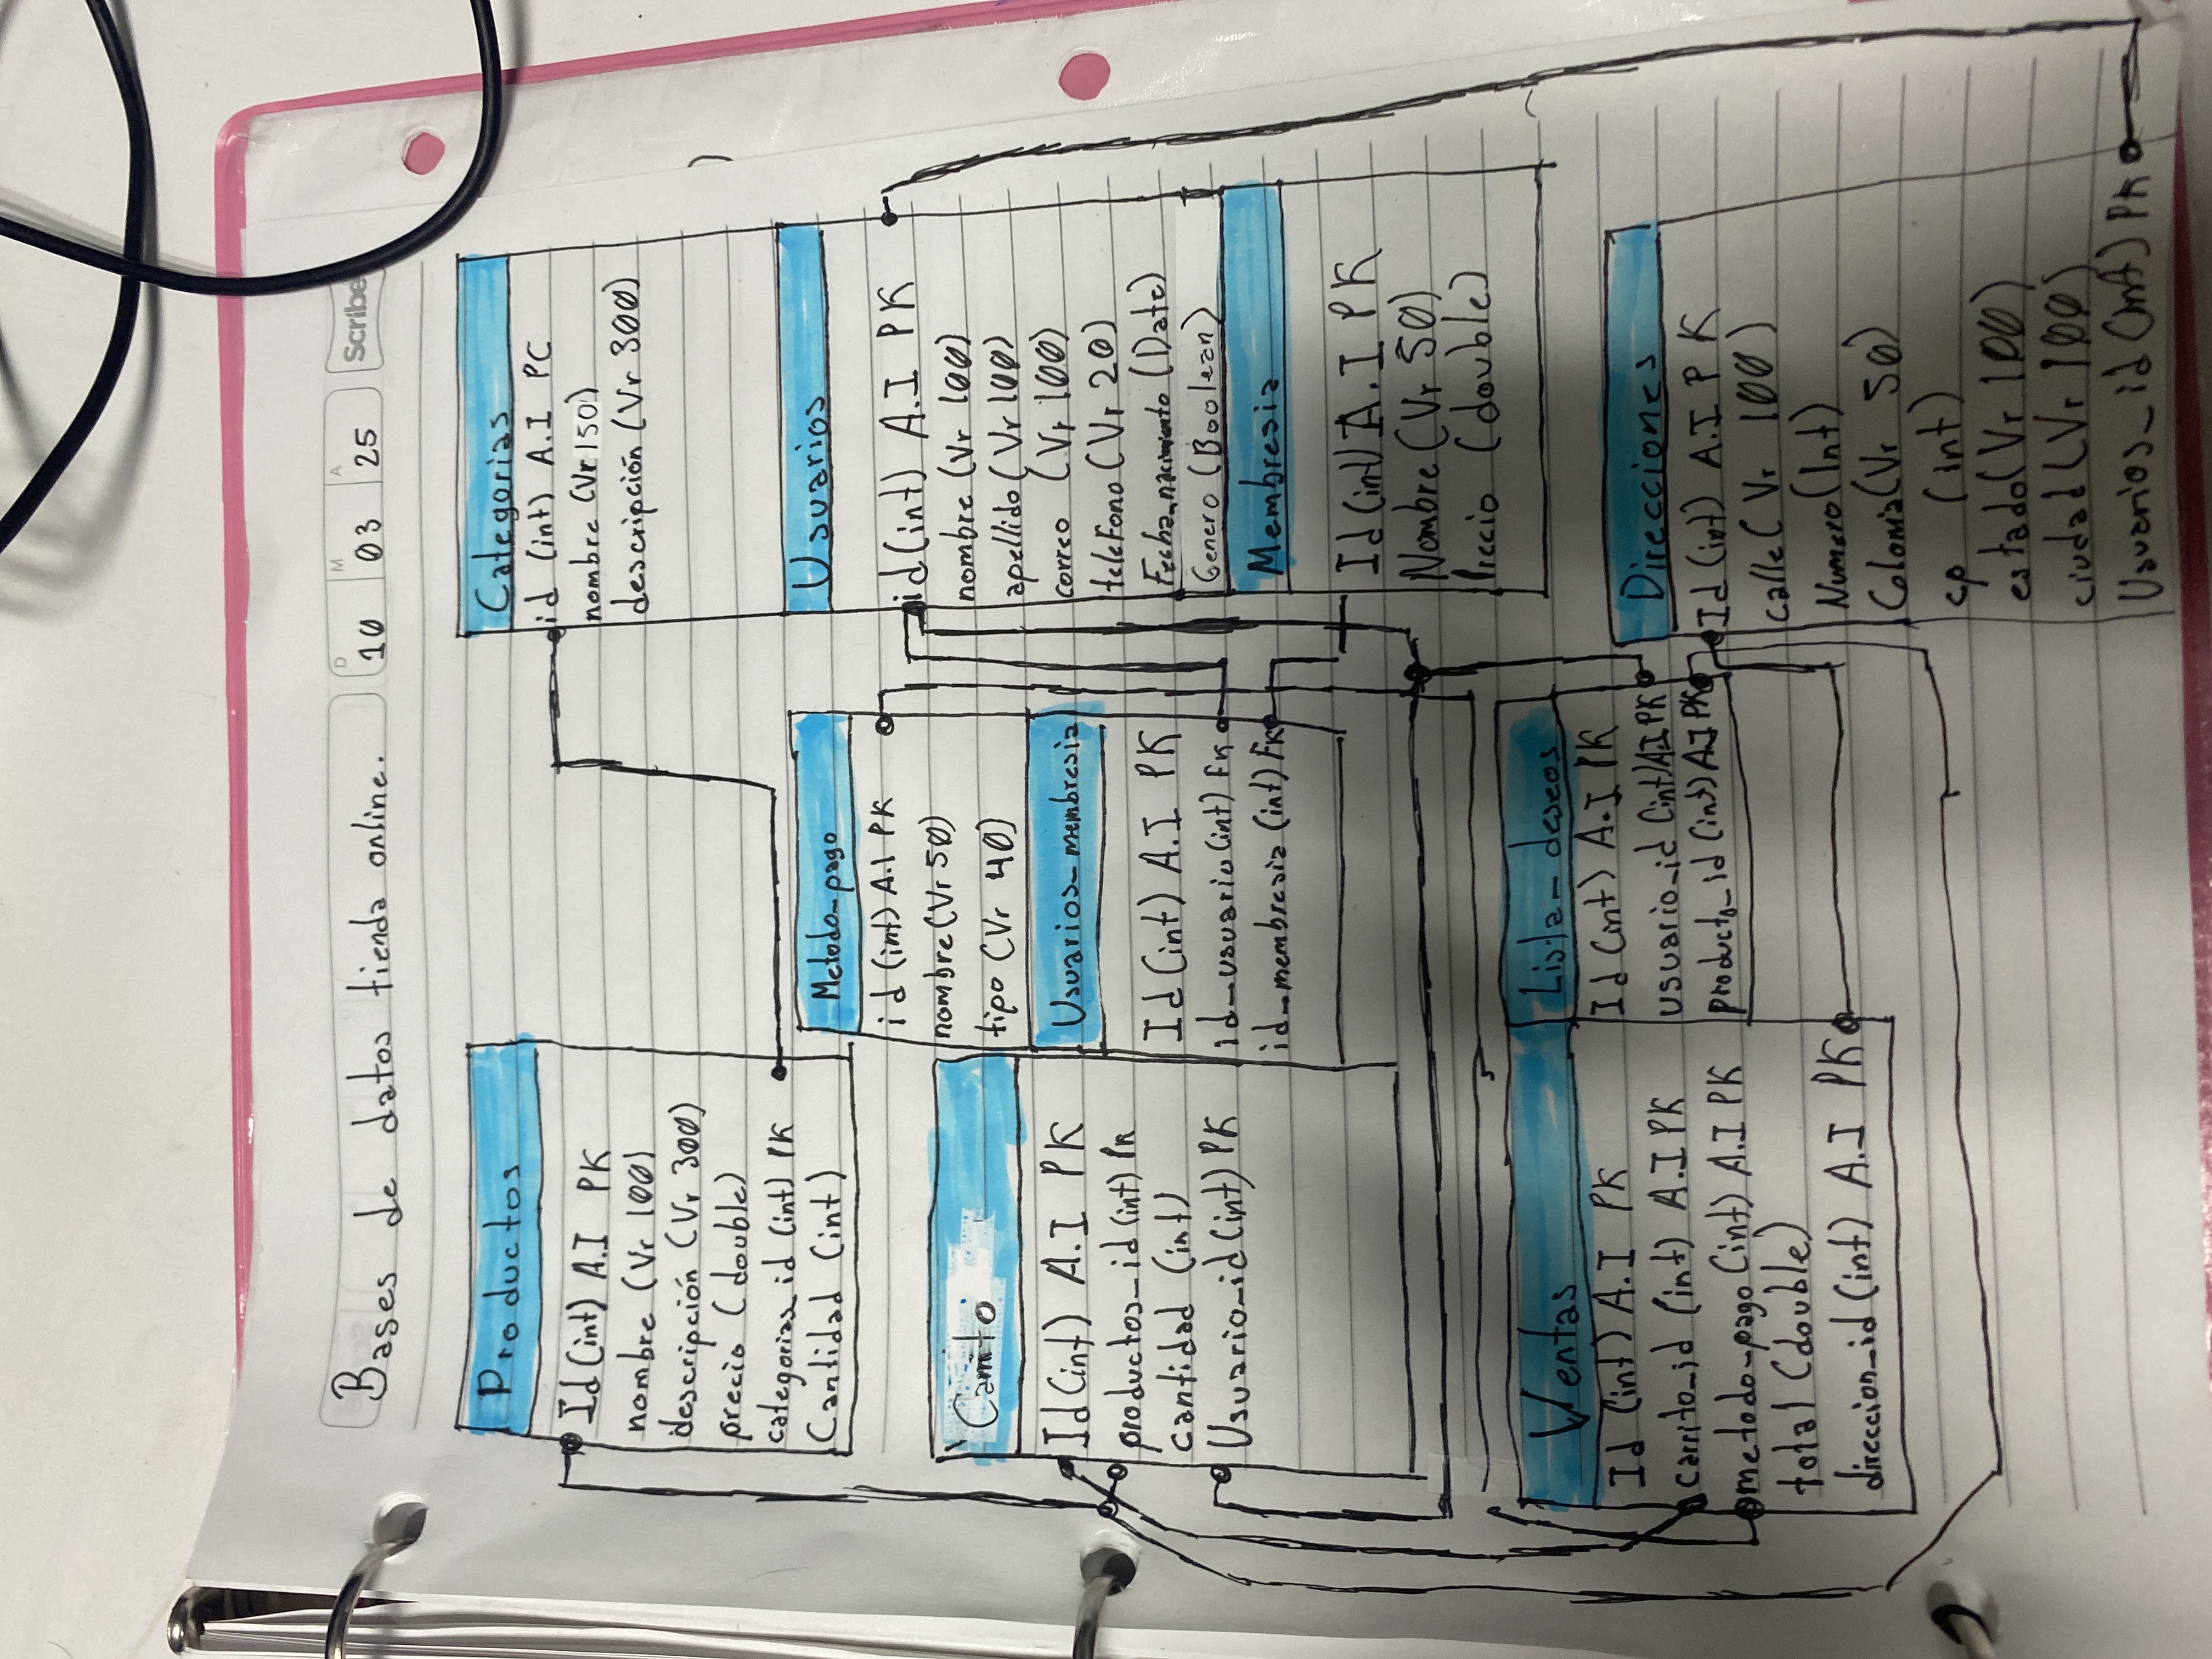 Bases de datos tienda online.
D 10 M 03 A 25
Scribe
Productos
Id (int) A.I PK
nombre (Vr 100)
descripción (Vr 300)
precio (double)
categorias_id (int) PK
Cantidad (int)
Categorias
id (int) A.I PC
nombre (Vr 150)
descripción (Vr 300)
Metodo_pago
id (int) A.I PK
nombre (Vr 50)
tipo (Vr 40)
Usuarios
id (int) A.I PK
nombre (Vr 100)
apellido (Vr 100)
correo (Vr 100)
teleFono (Vr 20)
Fecha_nacimiento (Date)
Genero (Boolean)
Carrito
Id (int) A.I PK
productos_id (int) PK
cantidad (int)
Usuario_id (int) PK
Usuarios_membresia
Id (int) A.I PK
id_usuario (int) FK
id_membresia (int) FK
Membresia
Id (int) A.I PK
Nombre (Vr 50)
Precio (double)
Ventas
Id (int) A.I PK
carrito_id (int) A.I PK
metodo_pago (int) A.I PK
total (double)
direccion_id (int) A.I PK
Lista_deseos
Id (int) A.I PK
usuario_id (int) A.I PK
producto_id (int) A.I PK
Direcciones
Id (int) A.I PK
calle (Vr 100)
Numero (Int)
Colonia (Vr 50)
cp (int)
estado (Vr 100)
ciudad (Vr 100)
Usuarios_id (int) PK